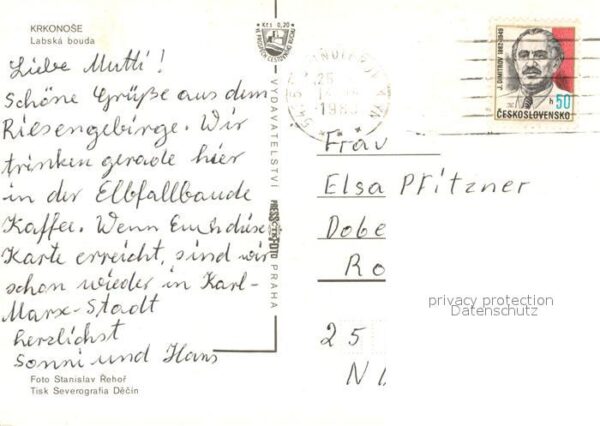 KRKONOŠE
Labská bouda
Liebe Mutti!
Schöne Grüße aus dem
Riesengebirge. Wir
trinken gerade hier
in der Elbfallbaude
Kaffee. Wenn Euch diese
Karte erreicht, sind wir
schon wieder in Karl-
Marx-Stadt
herzlichst
Sonni und Hans
Foto Stanislav Řehoř
Tisk Severografia Děčín
Kčs 0,20
VYDAVATELSTVÍ
PRESSFOTO
PRAHA
J. DIMITROV 1882-1949
50
h
ČESKOSLOVENSKO
Frau
Elsa Pfitzner
Dobe
Ro
25
privacy protection
Datenschutz